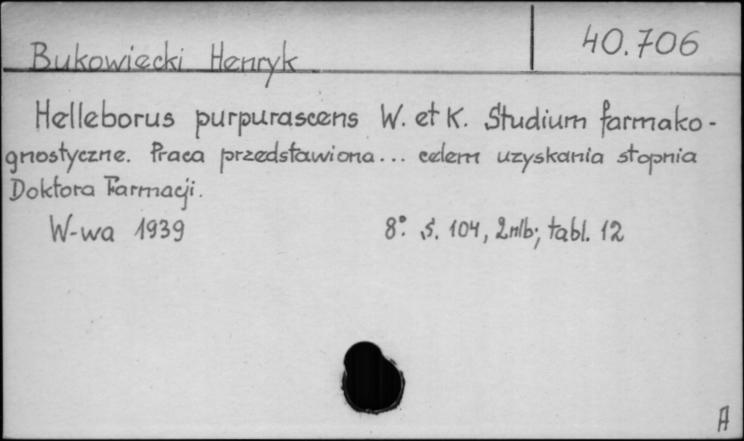 40.706
Bukowiecki Henryk
Helleborus purpurascens W. et K. Studium farmako-
gnostyczne. Praca przedstawiona... celem uzyskania stopnia
Doktora Farmacji.
W-wa 1939 8° s. 104, 2nlb; tabl. 12
A